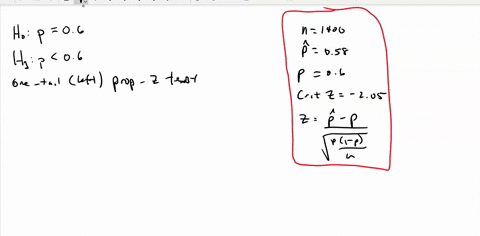 H₀: p = 0.6
H₃: p < 0.6
one-tail (left) prop-z test
n = 1400
p̂ = 0.58
p = 0.6
Crit Z = -2.05
Z = p̂ - p
√p(1-p)
n